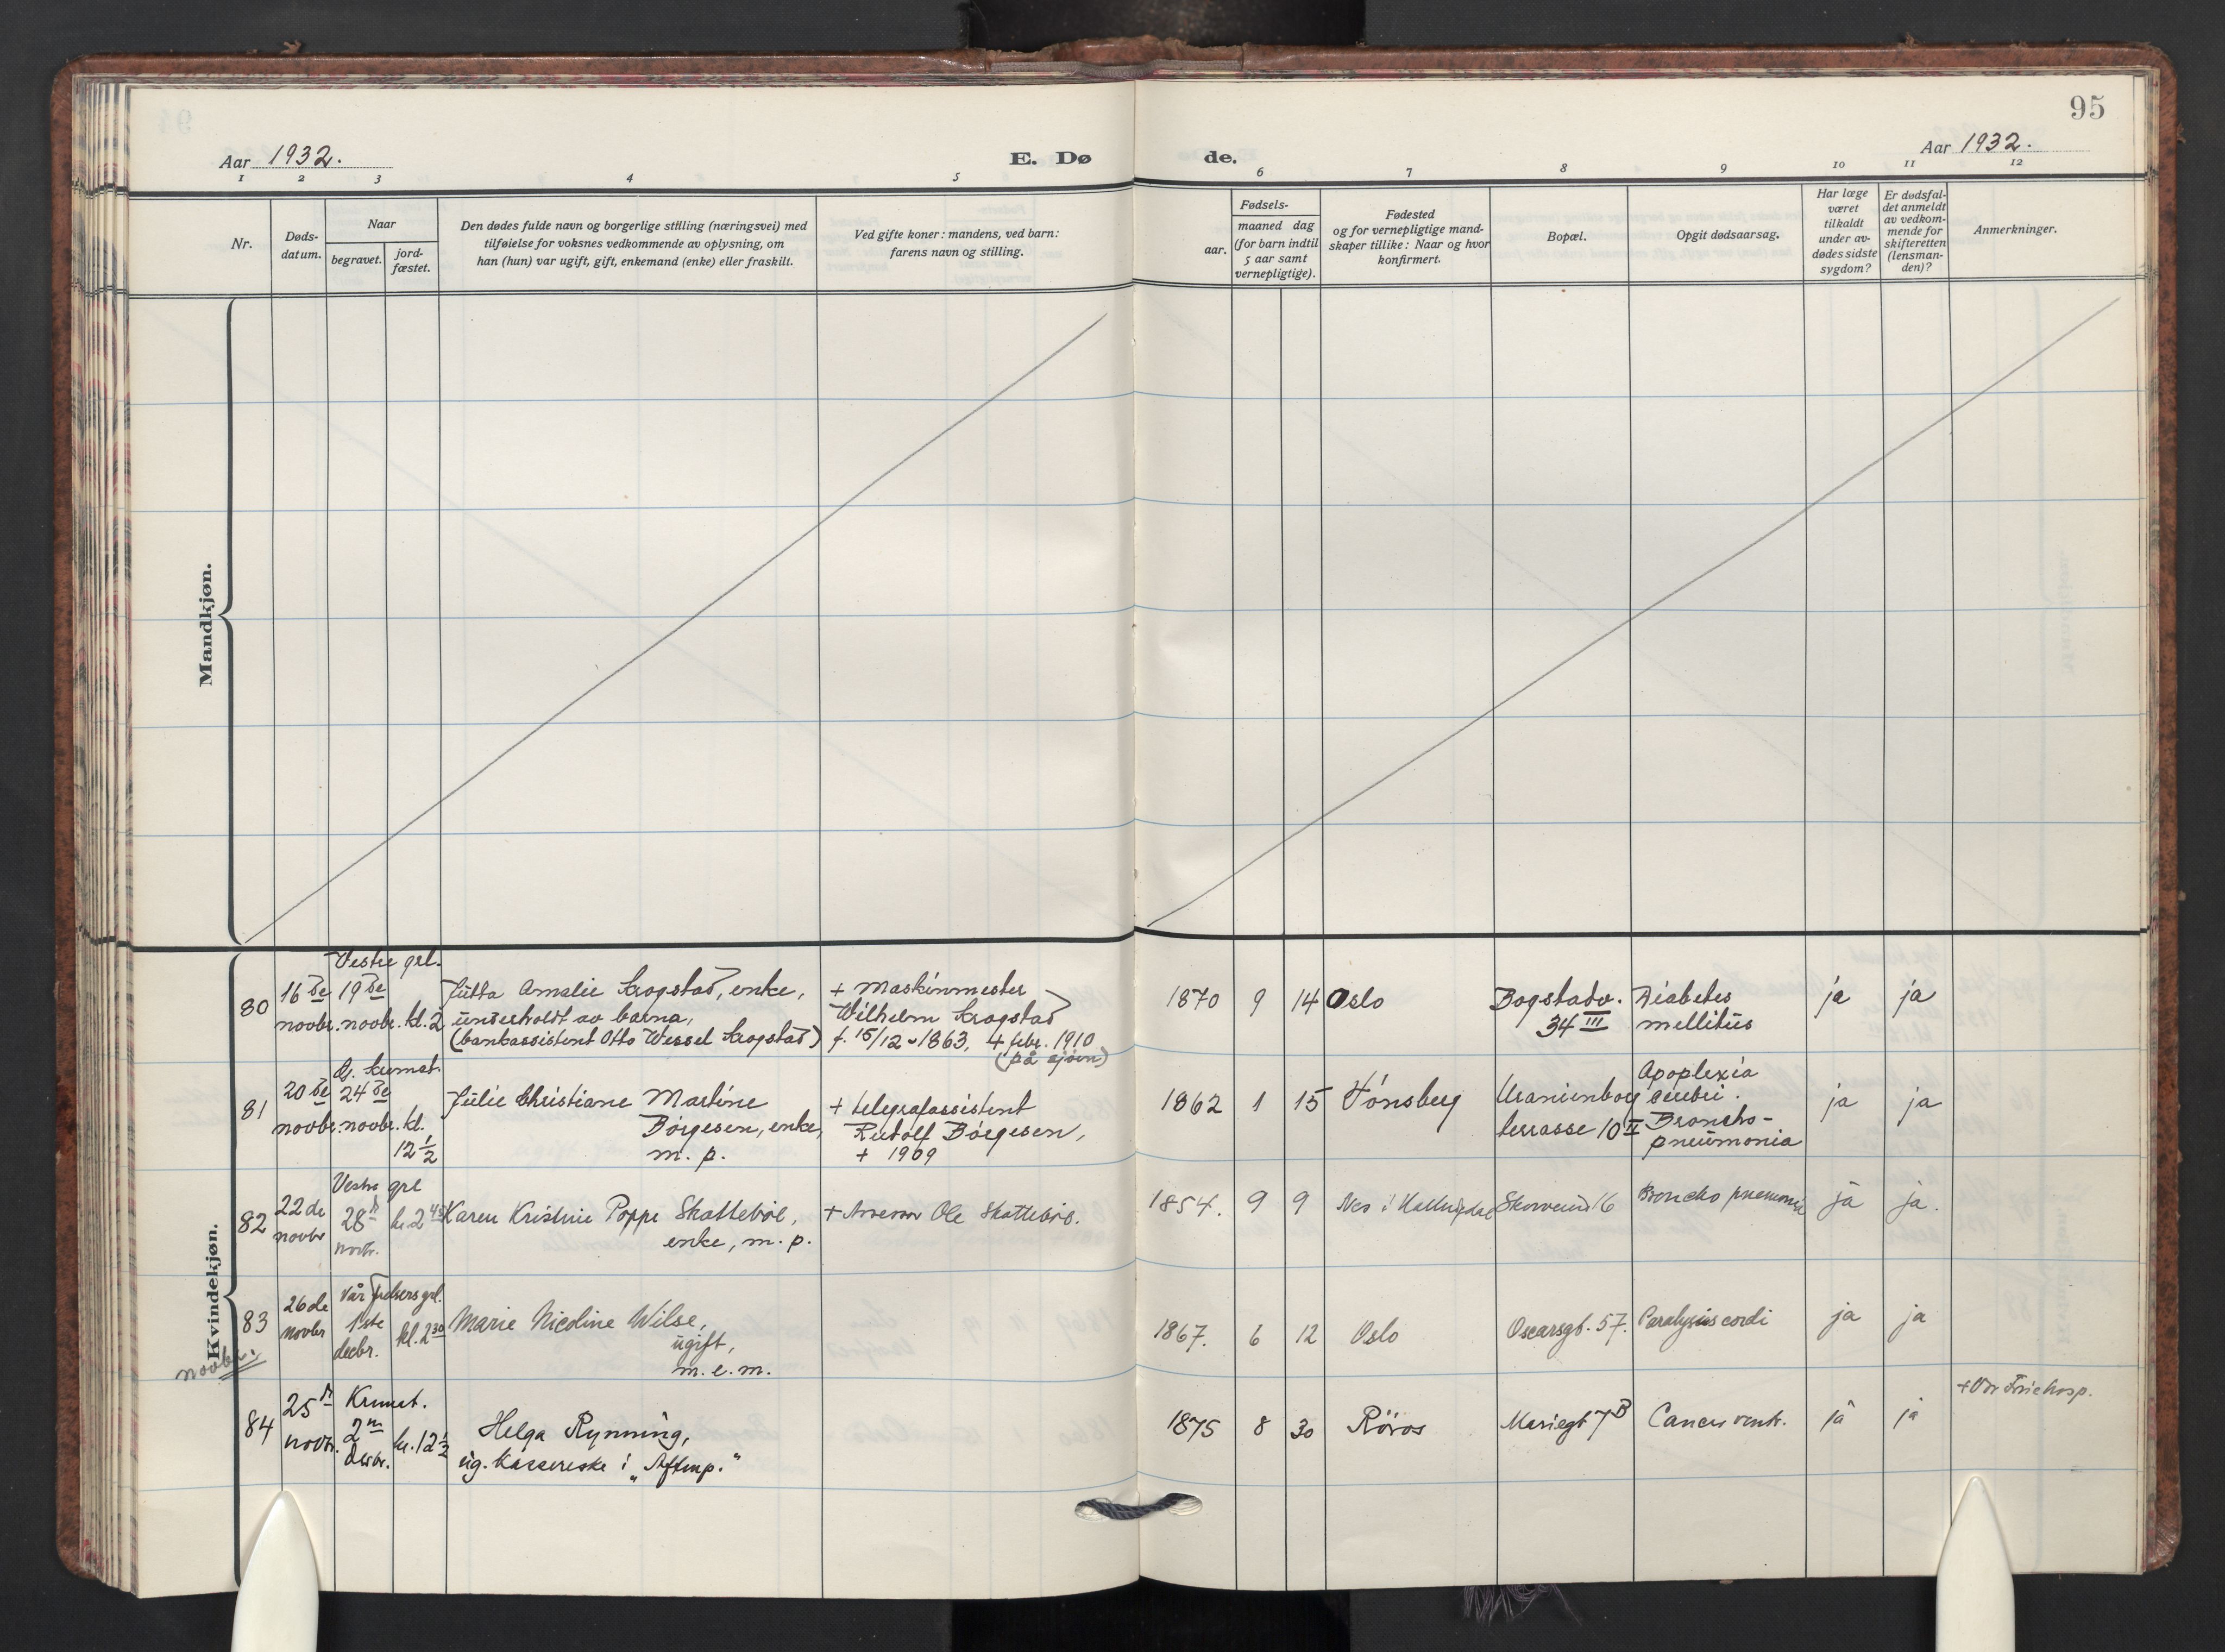 95
Aar 1932.
E. Dø
de.
Aar 1932.
1 2 3 4 5 6 7 8 9 10 11 12
Nr.
Døds-
datum.
Naar
begravet.
jord-
fæstet.
Den dødes fulde navn og borgerlige stilling (næringsvei) med
tilføielse for voksnes vedkommende av oplysning, om
han (hun) var ugift, gift, enkemand (enke) eller fraskilt.
Ved gifte koner: mandens, ved barn:
farens navn og stilling.
Fødsels-
aar.
maaned dag
(for barn indtil
5 aar samt
vernepligtige).
Fødested
og for vernepligtige mand-
skaper tillike: Naar og hvor
konfirmert.
Bopæl.
Opgit dødsaarsag.
Har læge
været
tilkaldt
under av-
dødes sidste
sygdom?
Er dødsfal-
det anmeldt
av vedkom-
mende for
skifteretten
(lensman-
den)?
Anmerkninger.
Mandkjøn.
Kvindekjøn.
80
16de
novbr.
Vestre grl.
19de
novbr. kl. 2
Jutta Amalie Krogstad, enke,
underholdt av barna,
(bankassistent Otto Wessel Krogstad)
+ Maskinmester
Wilhelm Krogstad
f. 15/12-1863, 4 febr. 1910
(på sjøen)
1870 9 14 Oslo
Bogstadv.
34 III
Diabetes
mellitus
ja ja
81
20de
novbr.
G. kremat.
24de
novbr. kl.
12 1/2
Julie Christiane Martine
Børgesen, enke,
m. p.
+ telegrafassistent
Rudolf Børgesen,
+ 1909
1862 1 15 Tønsberg
Uranienborg
terrasse 10 II
Apoplexia
cerebri.
Broncho-
pneumonia
ja ja
82
22de
novbr
Vestre grl
28d
novbr.
kl. 2 45
Karen Kristine Poppe Skattebøl,
enke, m. p.
+ Ole Skattebøl.
1854. 9 9 Nes i Hallingdal
16
Broncho pneumoni
ja ja.
83
26de
novbr
Vår Frelsers grl.
1ste
decbr.
kl. 2 30
Marie Nicoline Wilse,
ugift,
m. e. m.
1867. 6 12 Oslo
Oscarsgt. 57.
Paralysis cordi
ja ja
novbr.
84
25d
novbr.
Kremat.
2n
desbr.
kl. 12 1/2
Helga Rynning,
ug. kassererske i „Aftenp."
1875 8 30 Røros
Mariegt 7B
Cancer ventr.
ja ja